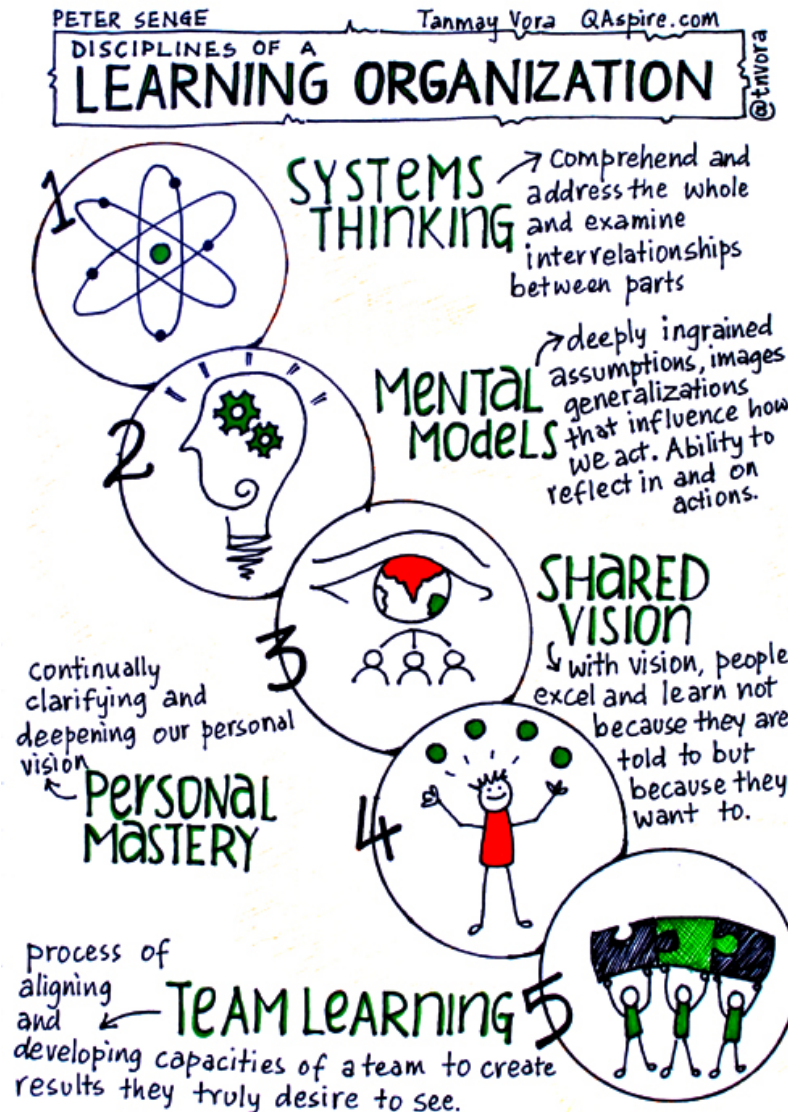 PETER SENGE
Tanmay Vora QAspire.com
@tnvora
DISCIPLINES OF A
LEARNING ORGANIZATION
1
SYSTEMS
THINKING
comprehend and
address the whole
and examine
interrelationships
between parts
2
MENTAL
MODELS
deeply ingrained
assumptions, images
generalizations
that influence how
we act. Ability to
reflect in and on
actions.
3
SHARED
VISION
with vision, people
excel and learn not
because they are
told to but
because they
want to.
4
continually
clarifying and
deepening our personal
vision
PERSONAL
MASTERY
5
process of
aligning
and
TEAM LEARNING
developing capacities of a team to create
results they truly desire to see.